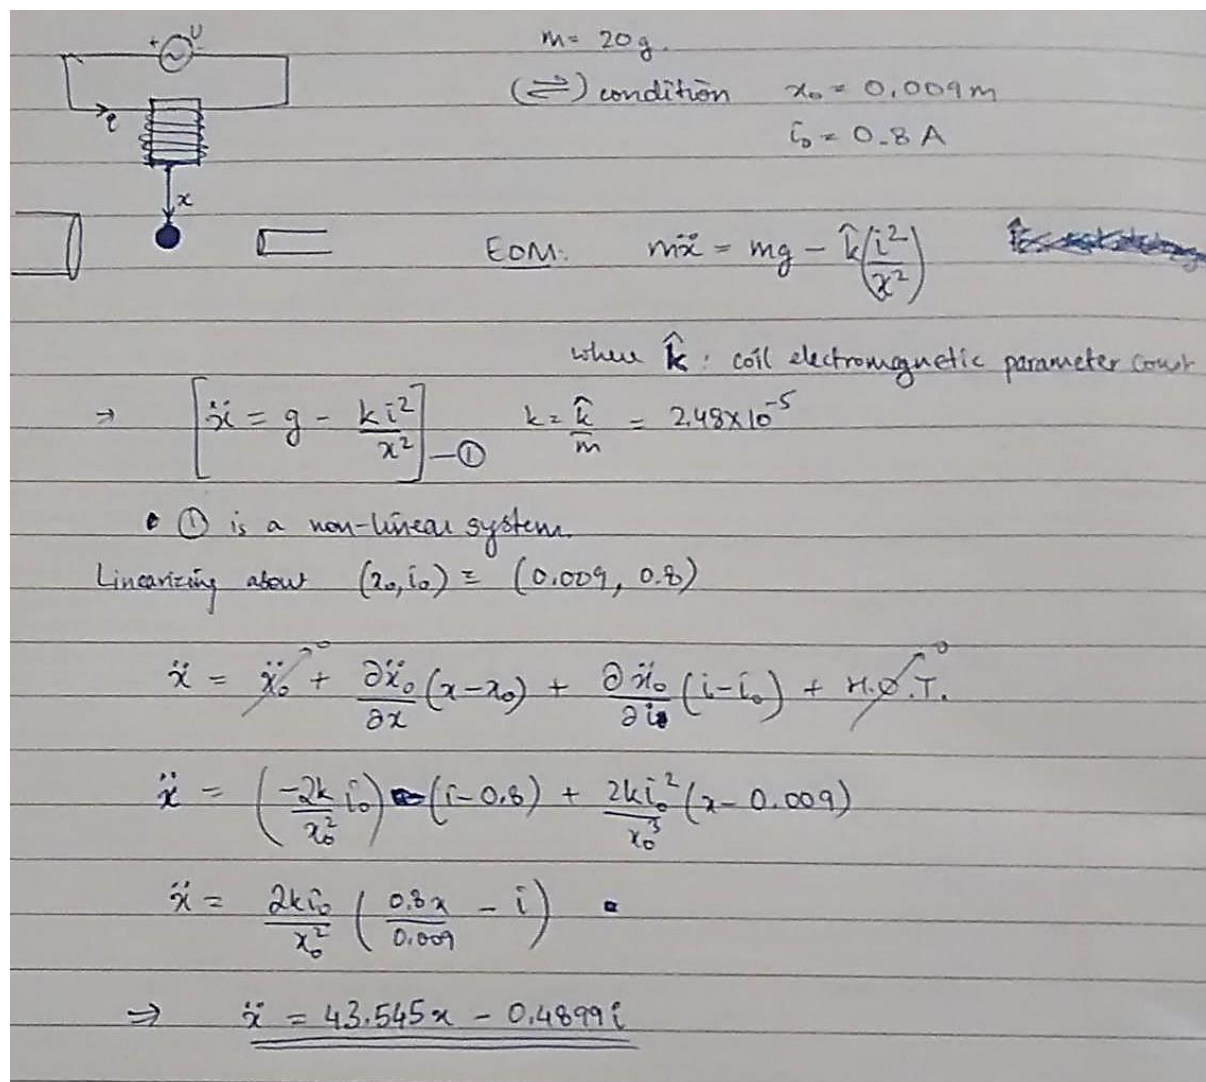 + U -
m = 20g.
(⇌) condition x₀ = 0.009m
i
i₀ = 0.8 A
x
EOM: mẍ = mg - k̂(i²/x²)
where k̂ : coil electromagnetic parameter const
→ [ẍ = g - ki²/x²] —① k = k̂/m = 2.48×10⁻⁵
• ① is a non-linear system.
Linearizing about (x₀, i₀) ≡ (0.009, 0.8)
ẍ = ẍ₀ →0 + ∂ẍ₀/∂x (x-x₀) + ∂ẍ₀/∂i (i-i₀) + H.O.T. →0
ẍ = (-2k/x₀² i₀) (i-0.8) + 2ki₀²/x₀³ (x-0.009)
ẍ = 2ki₀/x₀² (0.8x/0.009 - i)
⇒ ẍ = 43.545x - 0.4899i